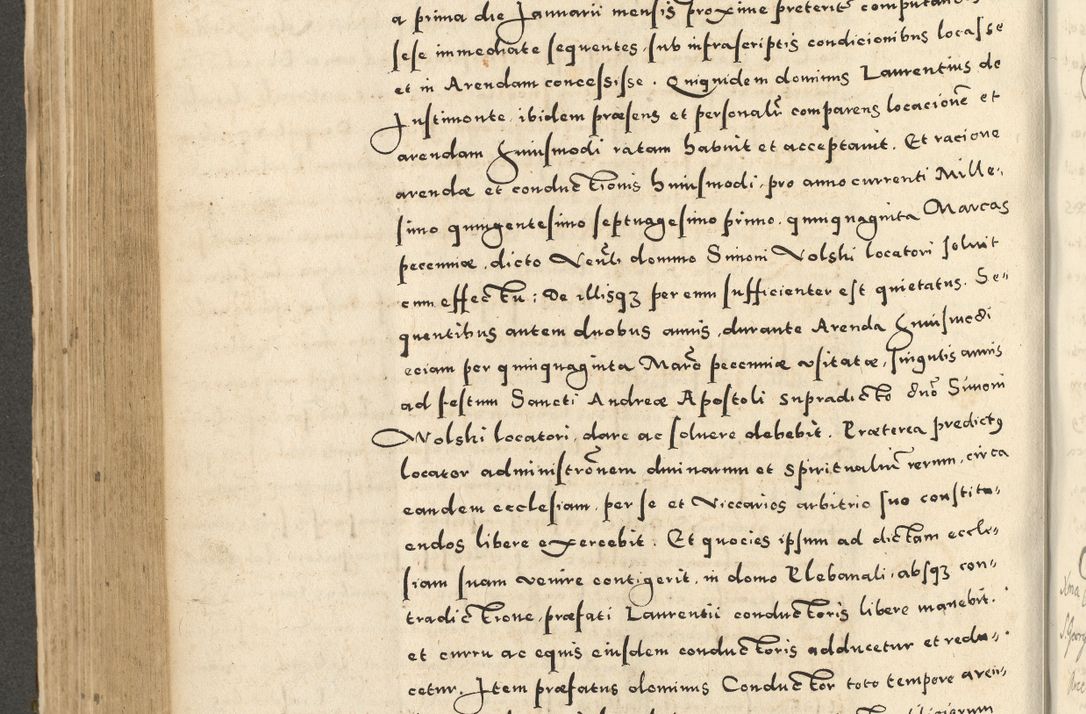 a prima die Januarii mensis proxime preterit̄
sese immediate sequentes, sub infrascriptis condicionibus locasse
et in Arendam concessisse. Quiquidem dominus Laurentius de
Justimonte, ibidem præsens et personalr̄ comparens locacionē et
arendam huiusmodi ratam habuit et acceptauit. Et racione
arendæ et conductionis huiusmodi, pro anno currenti Mille,
simo quingentesimo septuagesimo primo, quinquaginta Marcas
pecenniæ, dicto Venrl̄i domino Simoni Volski locatori soluit
cum effectu; de illisqꝫ per eum sufficienter est quietatus. Se„
quentibus autem duobus annis, durante Arenda huiusmodi
eciam per quinquaginta Marc̄ pecenniæ vsitatæ, singulis annis
ad festum Sancti Andreæ Apostoli supradicto dn̄o Simoni
Wolski locatori, dare ac soluere debebit. Præterea predictꝰ
locator administrōnem diuinarum et spiritualiū rerum, circa
eandem ecclesiam, per se et Viccarios arbitrio suo constitu„
endos libere exercebit. Et quocies ipsum ad dictam eccle„
siam suam venire contigerit, in domo Plebanali, absqꝫ con„
tradictione, præfati Laurentii conductoris libere manebit.
et curru ac equis eiusdem conductoris adducetur et redu„
cetur. Item præfatus dominus Conductor toto tempore aren„